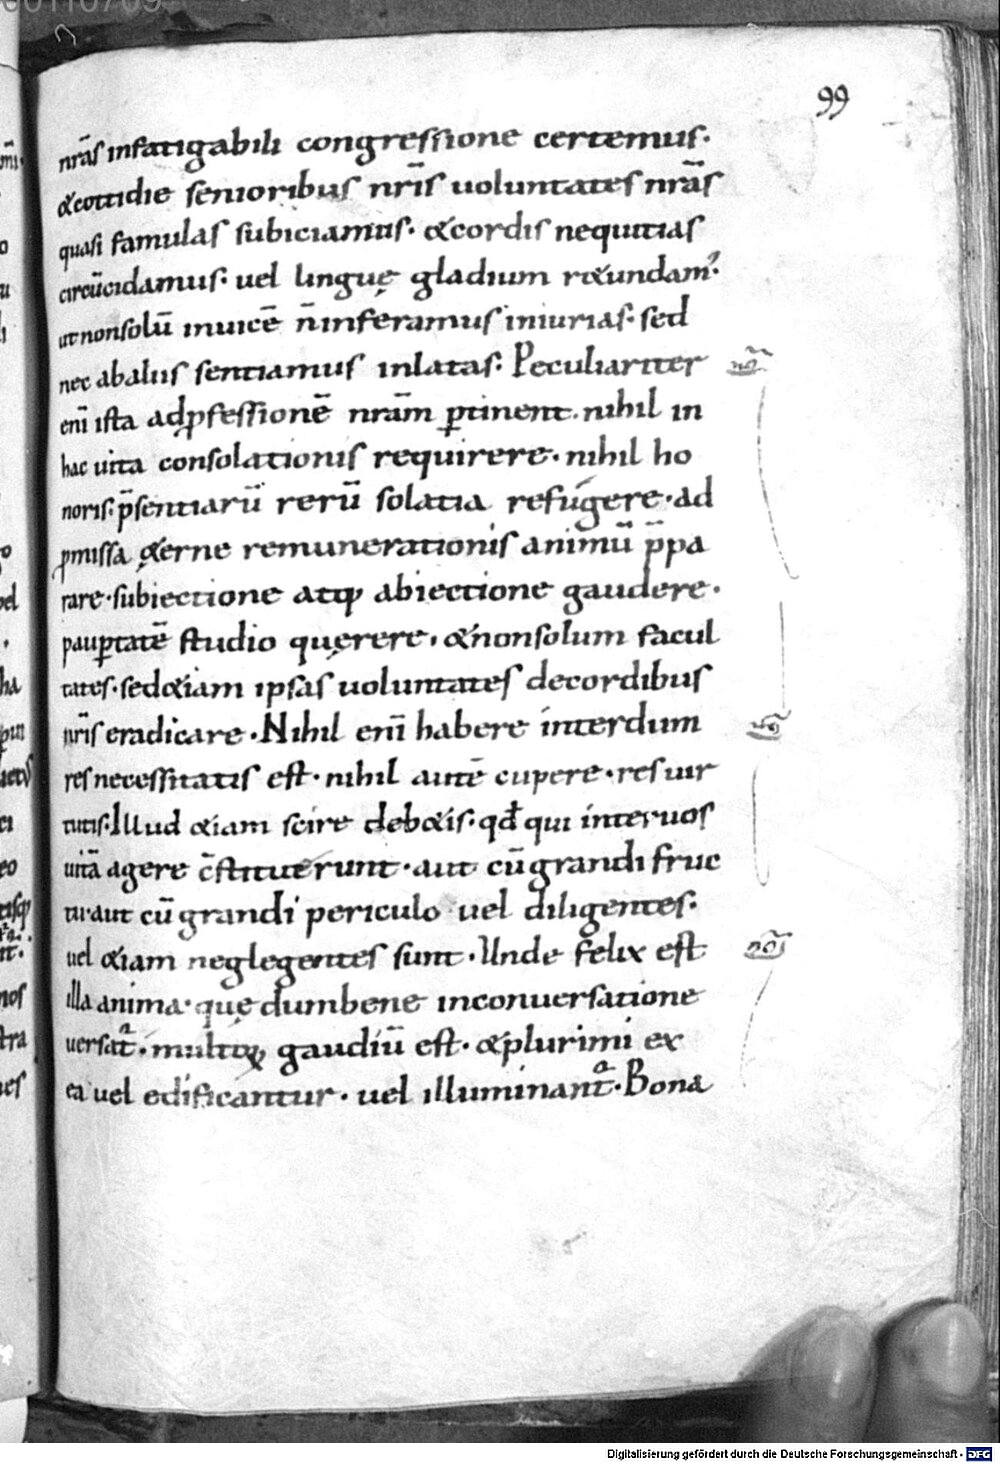 99
nr̄as infatigabili congressione certemus·
&cottidie senioribus nr̄is uoluntates nr̄as
quasi famulas subiciamus· &cordis nequitias
circūcidamus· uel linguę gladium r&undam᾽·
ut nonsolū inuicē n̄inferamus iniurias· sed
nec abaliis sentiamus inlatas· Peculiariter
enī ista adꝓfessionē nram̄ ꝑtinent· nihil in
hac uita consolationis requirere· nihil ho
noris· p̄sentiarū rerū solatia refúgere· ad
ꝓmissa ę&erne remunerationis animū p̄pa
rare· subiectione atq; abiectione gaudere·
pauꝑtatē studio quęrere· &nonsolum facul
tates· sed&iam ipsas uoluntates decordibus
nr̄is eradicare· Nihil enī habere interdum
res necessitatis est· nihil autē cupere· res uir
tutis· Illud &iam scire deb&is· qđ qui interuos
uitā agere c̄stituérunt· aut cū grandi fruc
tu· aut cū grandi periculo uel diligentes·
uel &iam neglegentes sunt· Unde felix est
illa anima· quę dumbene inconuersatione
uersat᷑· multoꝝ gaudiū est· &plurimi ex
ea uel edificantur· uel illuminant᷑· Bona
Digitalisierung gefördert durch die Deutsche Forschungsgemeinschaft - DFG